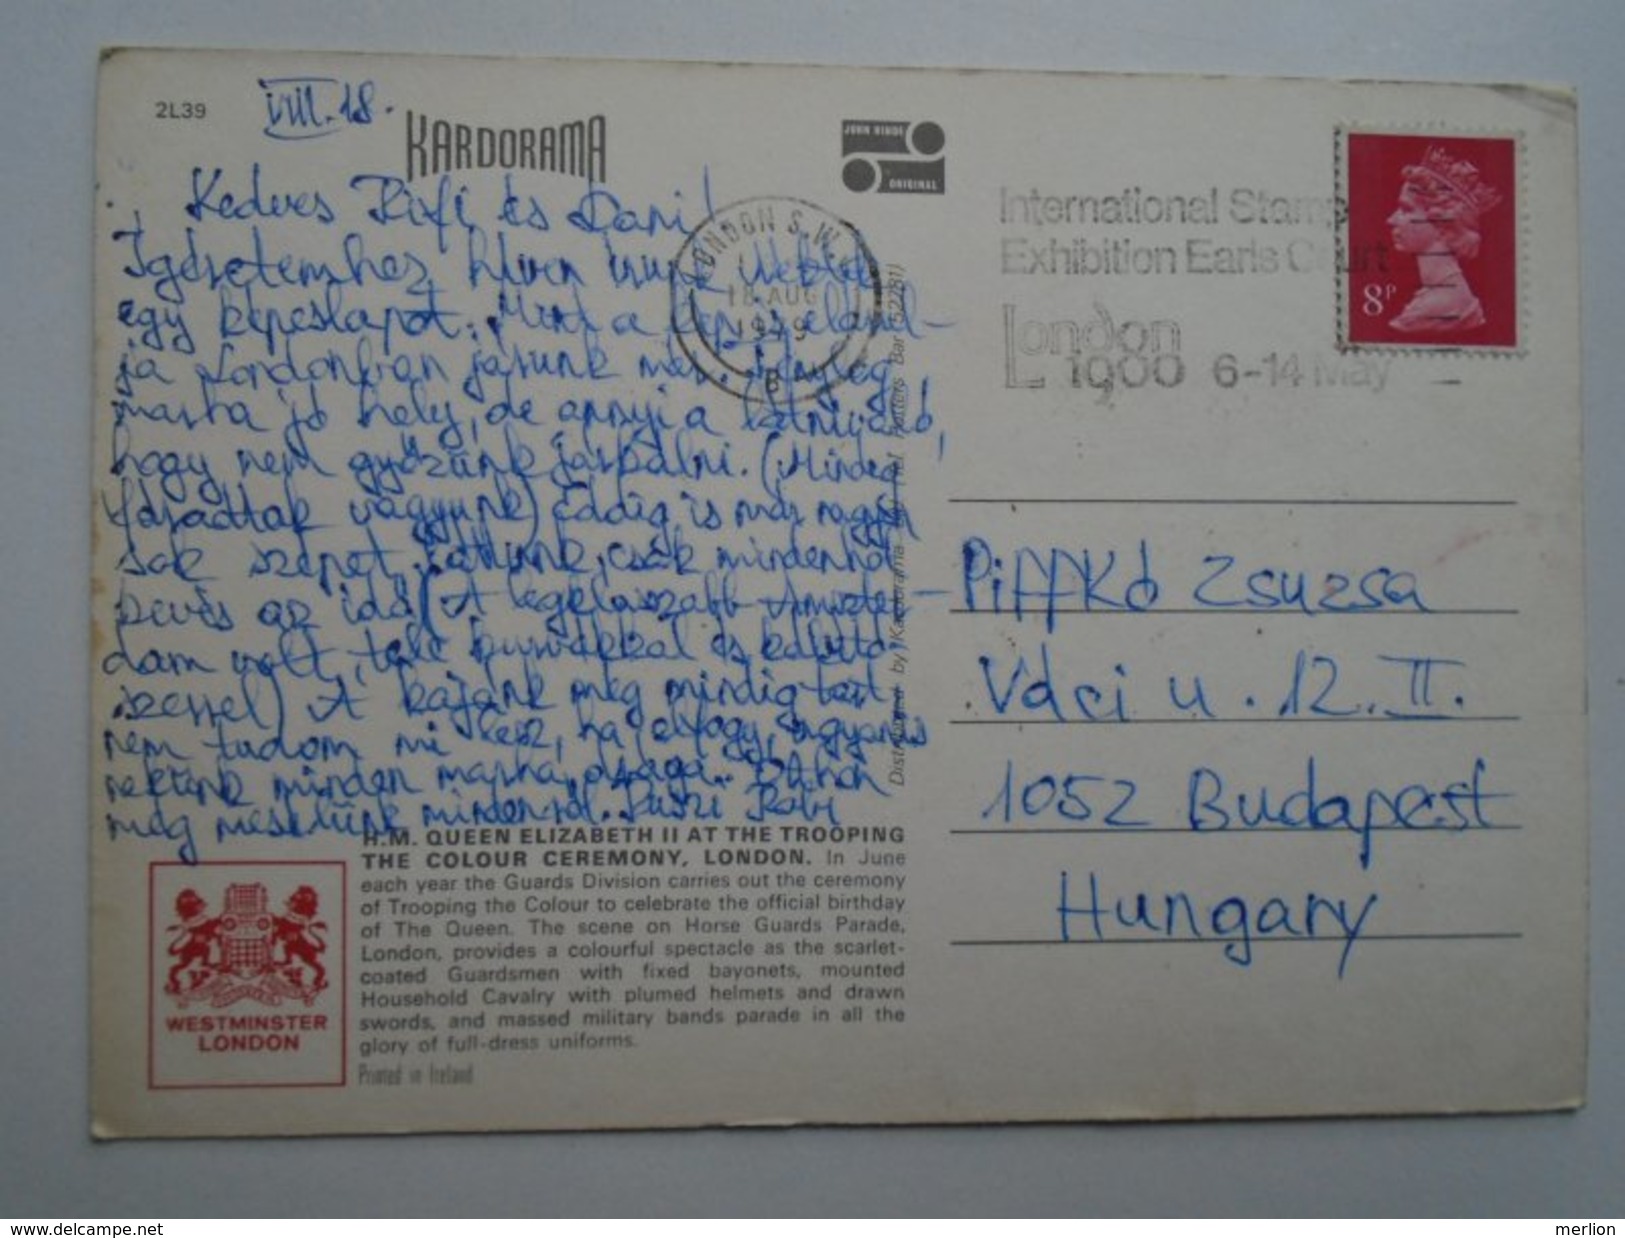 2L39
VIII. 18.
KARDORAMA
JOHN HINDE
ORIGINAL
Kedves Pifi és Dani!
Igéretemhez híven írunk
egy képeslapot. Mint a kép is elárul-
ja Londonban járunk
marha jó hely, de annyi a látnivaló,
hogy nem győzünk járkálni. (Mindég
fáradtak vagyunk) Eddig is már nagyon
sok szépet láttunk, csak mindenhol
kevés az idő. (A legélasszabb Amszter-
dam volt, tele kurvákkal és
szerrel) A kajánk még mindig tart
nem tudom mi lesz, ha elfogy, ugyanis
nekünk minden marha drága. Otthon
még mesélünk mindenről. Puszi Robi
LONDON S.W.
18 AUG
1979
B
International Stamp
Exhibition Earls Court
London
1980 6-14 May
8P
Distributed by Kardorama Potters Bar 52781)
Piffkó Zsuzsa
Váci u. 12. II.
1052 Budapest
Hungary
H.M. QUEEN ELIZABETH II AT THE TROOPING
THE COLOUR CEREMONY, LONDON. In June
each year the Guards Division carries out the ceremony
of Trooping the Colour to celebrate the official birthday
of The Queen. The scene on Horse Guards Parade,
London, provides a colourful spectacle as the scarlet-
coated Guardsmen with fixed bayonets, mounted
Household Cavalry with plumed helmets and drawn
swords, and massed military bands parade in all the
glory of full-dress uniforms.
Printed in Ireland
WESTMINSTER
LONDON
www.delcampe.net
merlion